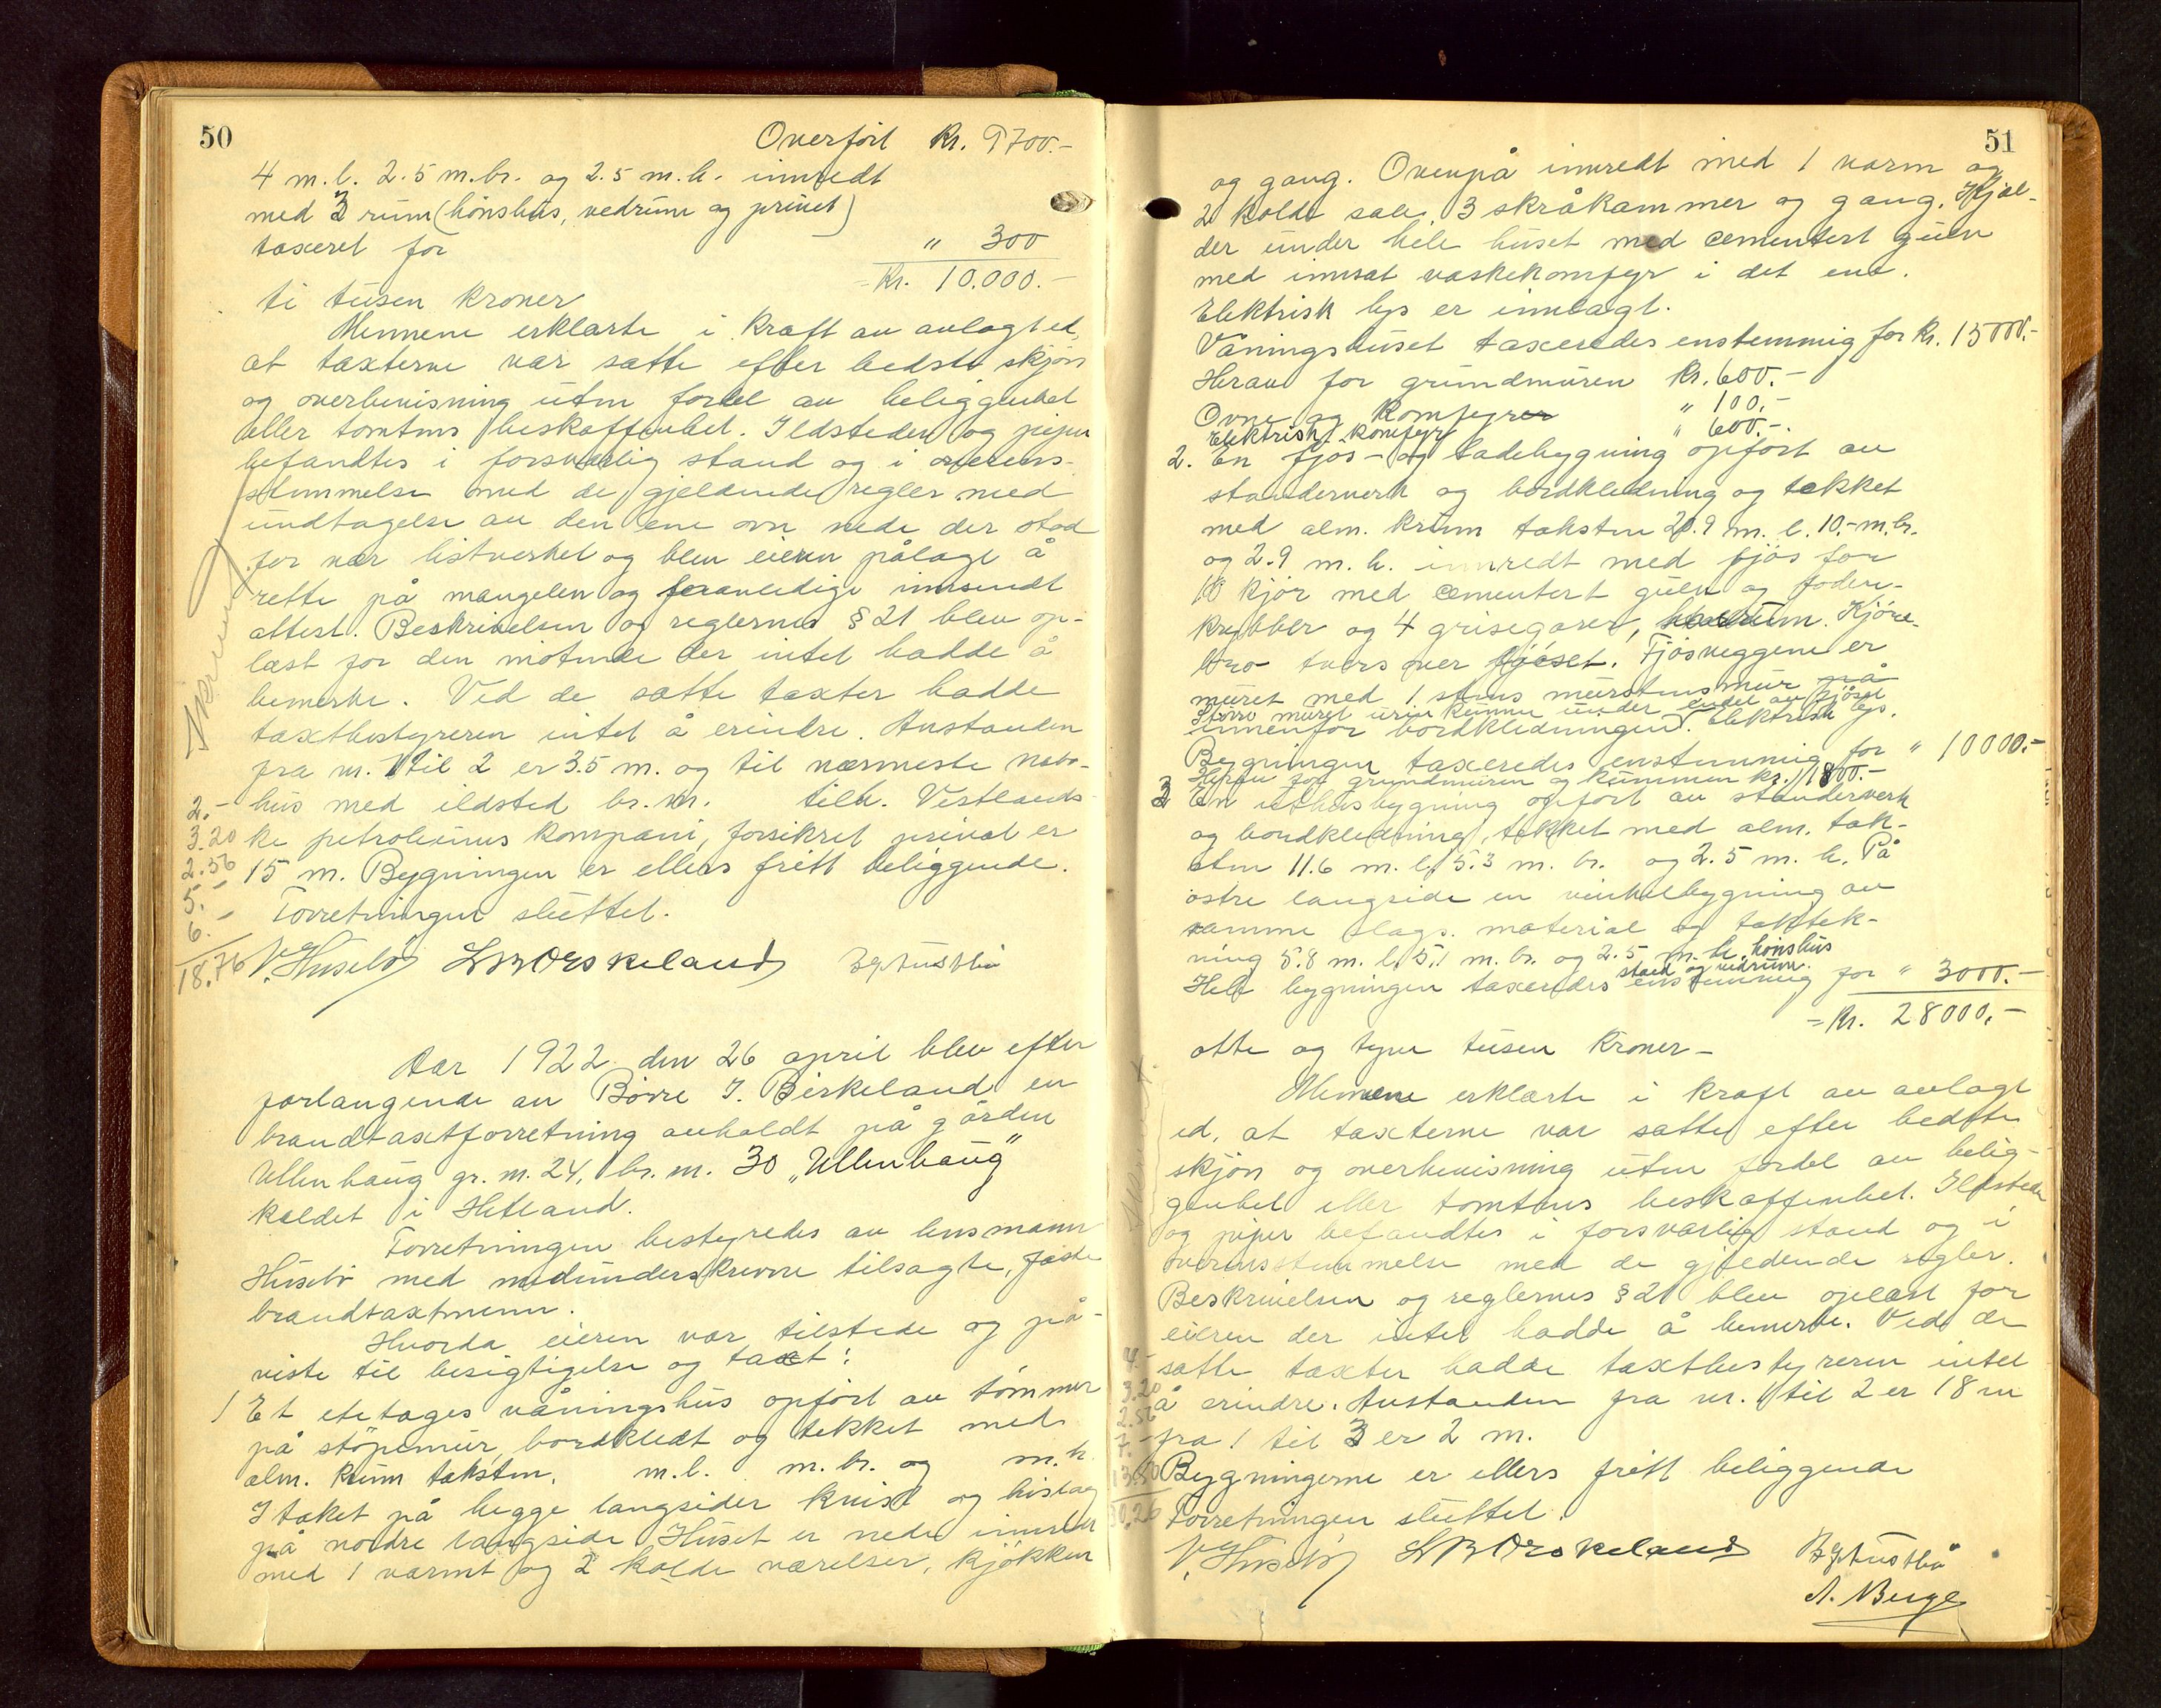 50
Overført Kr. 9700.-
4 m. l. 2.5 m. br. og 2.5 m. h. innredt
med 3 rum (hönshus, vedrum og privet)
taxeret for " 300
= Kr. 10.000.-
ti tusen kroner
Mennene erklærte i kraft av avlagt ed,
at taxterne var satte efter bedste skjön
og overbevisning uten fordel av beliggenhet
eller tomtens beskaffenhet. Ildsteder og piper
befandtes i forsvarlig stand og i overens-
stemmelse med de gjeldende regler med
undtagelse av den ene ovn nede der stod
for nær listverket og blev eieren pålagt å
rette på mangelen og foranledige innsendt
attest. Beskrivelsen og reglernes § 21 blev op-
læst for den møtende der intet hadde å
bemerke. Ved de satte taxter hadde
taxtbestyreren intet å erindre. Avstanden
fra nr. 1 til 2 er 3.5 m. og til nærmeste nabo-
hus med ildsted br. nr. tilh. Vestlands-
ke petroleums kompani, forsikret privat er
15 m. Bygningen er ellers fritt beliggende.
Forretningen sluttet.
2.-
3.20
2.56
5.-
6.-
18.76
V. Husebö
Aar 1922 den 26 april blev efter
forlangende av Börre J. Birkeland en
brandtaxtforretning avholdt på gården
Ullenhaug gr. nr. 24, br. nr. 30 „Ullenhaug"
kaldet i Hetland.
Forretningen bestyredes av lensmann
Husebö med medunderskrevne tilsagte, faste
brandtaxtmenn.
Hvorda eieren var tilstede og på-
viste til besigtigelse og taxt:
1 Et etetages våningshus opfört av tömmer
på stöpemur, bordkledt og tekket med
alm. krum taksten, m. l. m. br. og m. h.
I taket på begge langsider kvist og bislag
på nordre langside. Huset er nede innredt
med 1 varmt og 2 kolde værelser, kjökken
51
og gang. Ovenpå innredt med 1 varm og
2 kolde sale, 3 skråkammer og gang. Kjæl-
der under hele huset med cementert gulv
med innsat vaskekomfyr i det ene.
Elektrisk lys er innlagt.
Våningshuset taxeredes enstemmig for Kr. 15000.-
Herav for grundmuren Kr. 600.-
Ovne og Komfyrer " 100.-
Elektrisk komfyr " 600.-.
2. En fjös- og ladebygning opfört av
standerverk og bordkledning og tekket
med alm. krum taksten 20.9 m. l. 10.- m. br.
og 2.9 m. h. innredt med fjös for
10 kjör med cementert gulv og foder-
krybber og 4 grisegarer, Kjöre-
bro tvers over fjöset. Fjösveggene er
muret med 1 stens murstensmur på
Större muret urin kumme under endel av fjöset
innenfor bordkledningen. Elektrisk lys.
Bygningen taxeredes enstemmig for " 10000.-
Herav for grundmuren og kummen kr. 1800.-
3 En uthusbygning opfört av standerverk
og bordkledning, tekket med alm. tak-
sten 11.6 m. l. 5.3 m. br. og 2.5 m. h. På
östre langside en vinkelbygning av
samme slags. material og taktek-
ning 5.8 m. l. 5.1 m. br. og 2.5 m. h. hönshus
stald og vedrum.
Hele bygningen taxeredes enstemmig for " 3000.-
= Kr. 28000.-
otte og tyve tusen Kroner -
Mennene erklærte i kraft av avlagt
ed, at taxterne var satte efter bedste
skjön og overbevisning uten fordel av belig-
genhet eller tomtens beskaffenhet. Ildsteder
og piper befandtes i forsvarlig stand og i
overensstemmelse med de gjeldende regler.
Beskrivelsen og reglernes § 21 blev oplæst for
eieren der intet hadde å bemerke. Ved de
satte taxter hadde taxtbestyreren intet
å erindre. Avstanden fra nr. 1 til 2 er 18 m
fra 1 til 3 er 2 m.
Bygningerne er ellers fritt beliggende
Forretningen sluttet.
4.-
3.20
2.56
7.-
13.50
30.26
V. Husebö
A. Berge